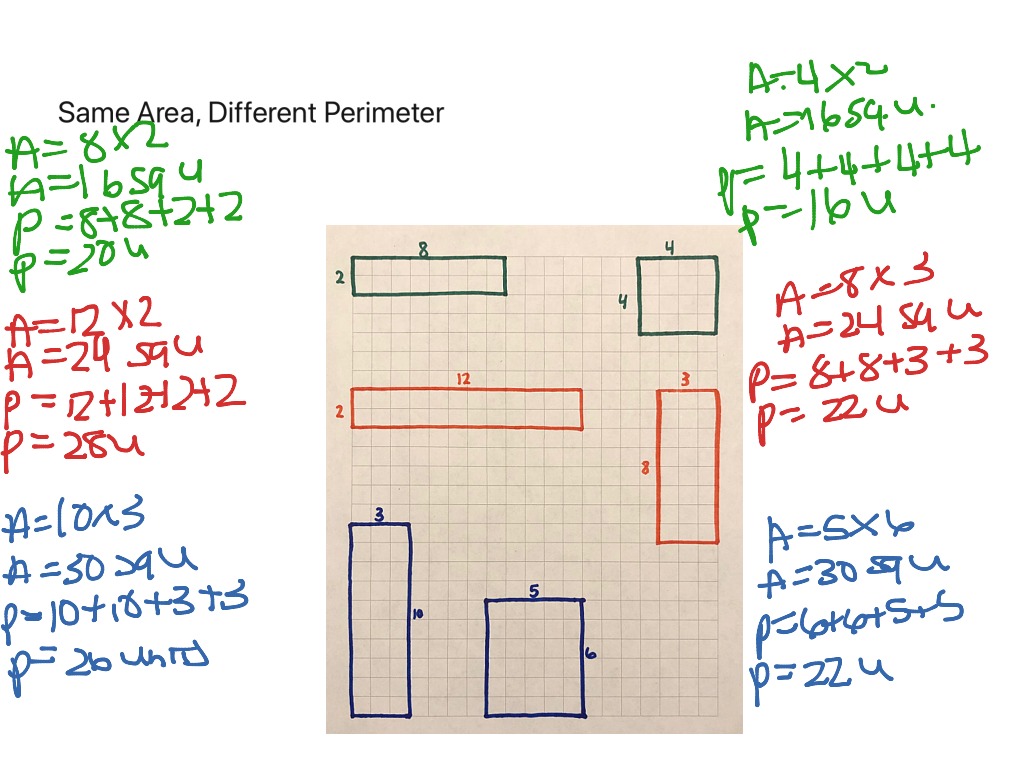 Same Area, Different Perimeter
A=8x2
A=16 sq u
P=8+8+2+2
P=20u
A=4x2
A=16 sq u.
P=4+4+4+4
P=16u
8
2
4
4
A=12x2
A=24 sq u
P=12+12+2+2
P=28u
A=8x3
A=24 sq u
P=8+8+3+3
P=22u
12
2
3
8
A=10x3
A=30 sq u
P=10+10+3+3
P=26 units
A=5x6
A=30 sq u
P=6+6+5+5
P=22u
3
10
5
6